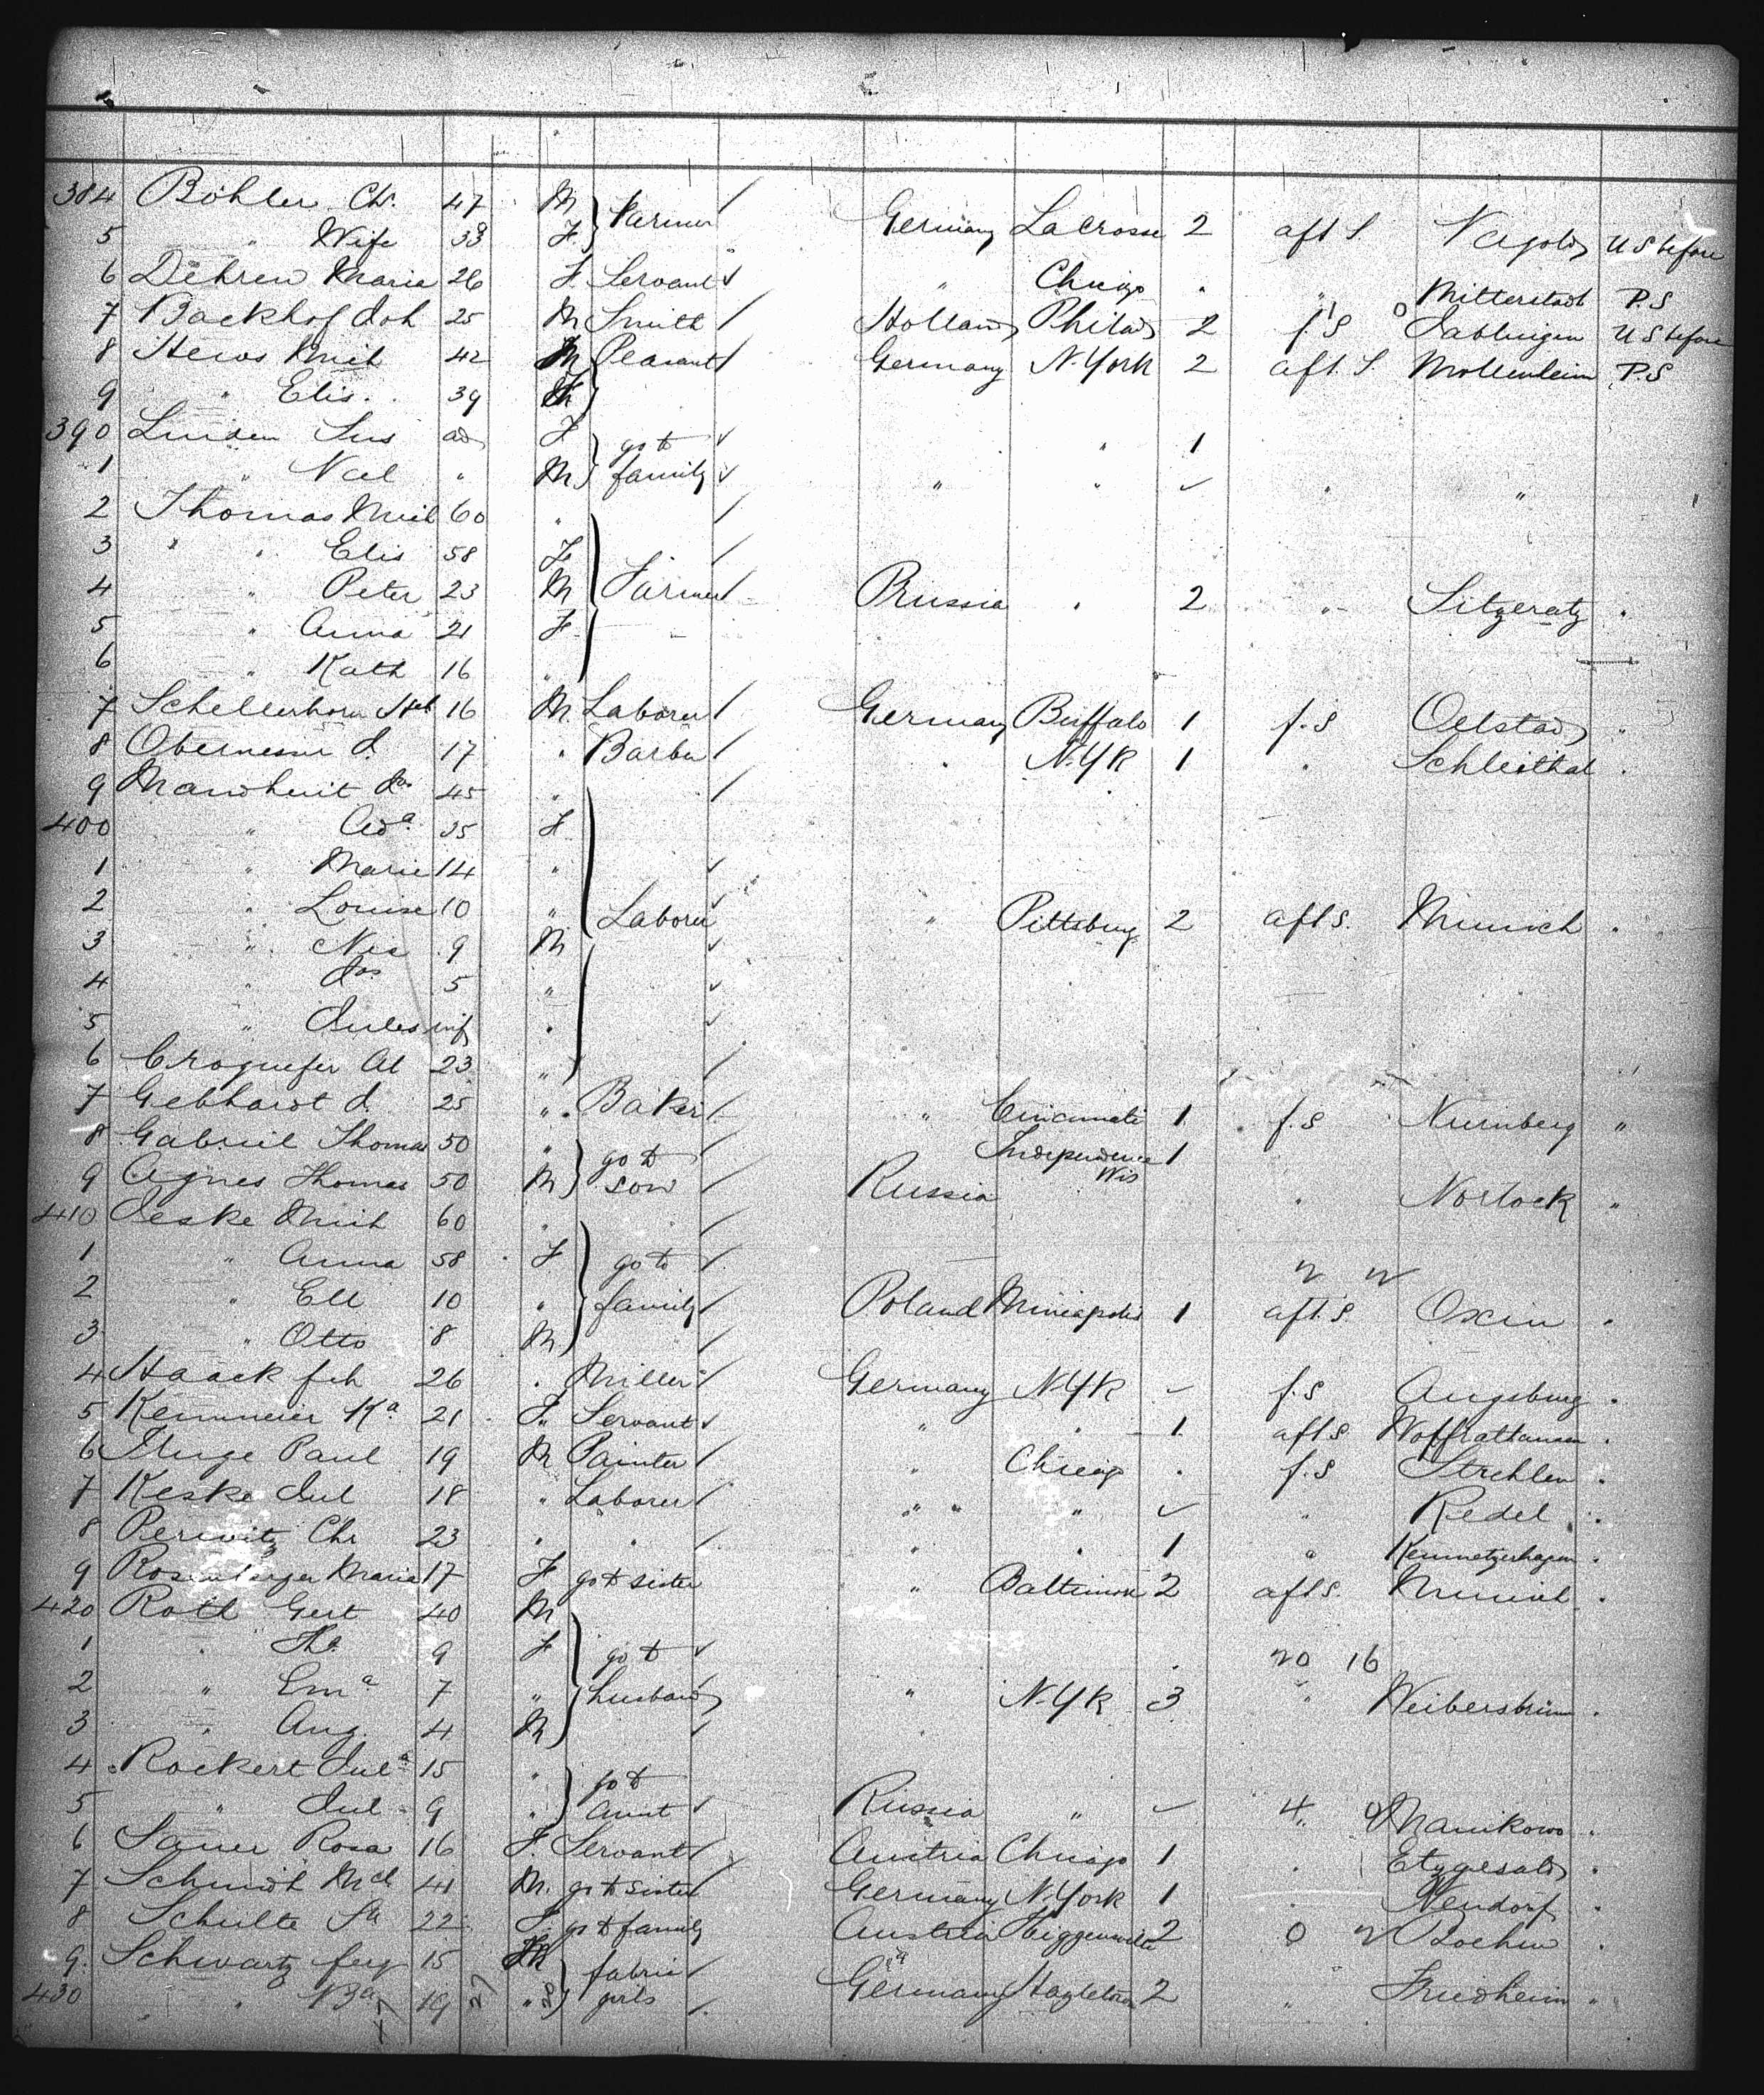 384 Böhler Chr. 47 M } Farmer
5 " Wife 33 F } Germany LaCrosse 2 aft S. Nagold U S before
6 Dehren Maria 26 F Servant " Chicago " " Mitterstadt P.S
7 Backhof Joh 25 M Smith Holland Philad 2 f. S U S before
8 Hews Mich 42 M Peasant Germany N. York 2 aft. S. P.S
9 " Elis. 39 F
390 Linden Sus ad F } go to " 1
1 " Nal " M } family " " "
2 Thomas Mich 60 "
3 " " Elis 58 F
4 " Peter 23 M Farmer Prussia " 2 " Sitzeratz "
5 " Anna 21 F
6 " Kath 16 "
7 Schellerhorn 16 M Laborer Germany Buffalo 1 f. S Oelstad "
8 Obermesser J. 17 " Barber " N.YK 1 " Schleithal "
9 45 "
400 " Ada 35 F
1 " Marie 14 "
2 " Louise 10 " Laborer " Pittsburg 2 aft S. Munich "
3 " Nic 9 M
4 " Jos 5 "
5 " Jules inf "
6 Croquefer Al 23 "
7 Gebhardt J. 25 " Baker " Cincinnati 1 f. S Nurnberg "
8 Gabriel Thomas 50 " } go to Independence 1
9 Agnes Thomas 50 M } son Russia Wis " Nortock "
410 Jeske Mich 60 "
1 " Anna 58 F } go to
2 " Ell 10 " } family Poland Mineapolis 1 aft. S. Oxin "
3 " Otto 8 M
4 Haack 26 " Miller Germany N.YK f. S Augsburg "
5 Kemmeier Ka 21 F. Servant " " 1 aft S. Wolfrathausen "
6 Paul 19 M Painter " Chicago " f. S Strehlen "
7 Keske Jul 18 " Laborer " " " " Redel "
8 Perwitz Chr 23 " " " " 1 " "
9 Maria 17 F go to sister " Baltimore 2 aft S. Munich "
420 Roth Gert 40 M
1 " 9 F } go to 20 16
2 " Ema 7 " } husband " N.YK 3 " Weibersbrunn "
3 " Aug. 4 M
4 Rockert Jula 15 " } go to
5 " Jul 9 " } aunt Russia " 4 Manikowo "
6 Sauer Rosa 16 F. Servant Austria Chicago 1 " "
7 Schmidt 41 M. go to sister Germany N. York 1 " Neudorf "
8 Schulte 22 F. go to family Austria 2 0
9. Schwartz 15 } fabric
430 " " Ba 19 " } girls Germany Hazleton 2 " Friedheim "